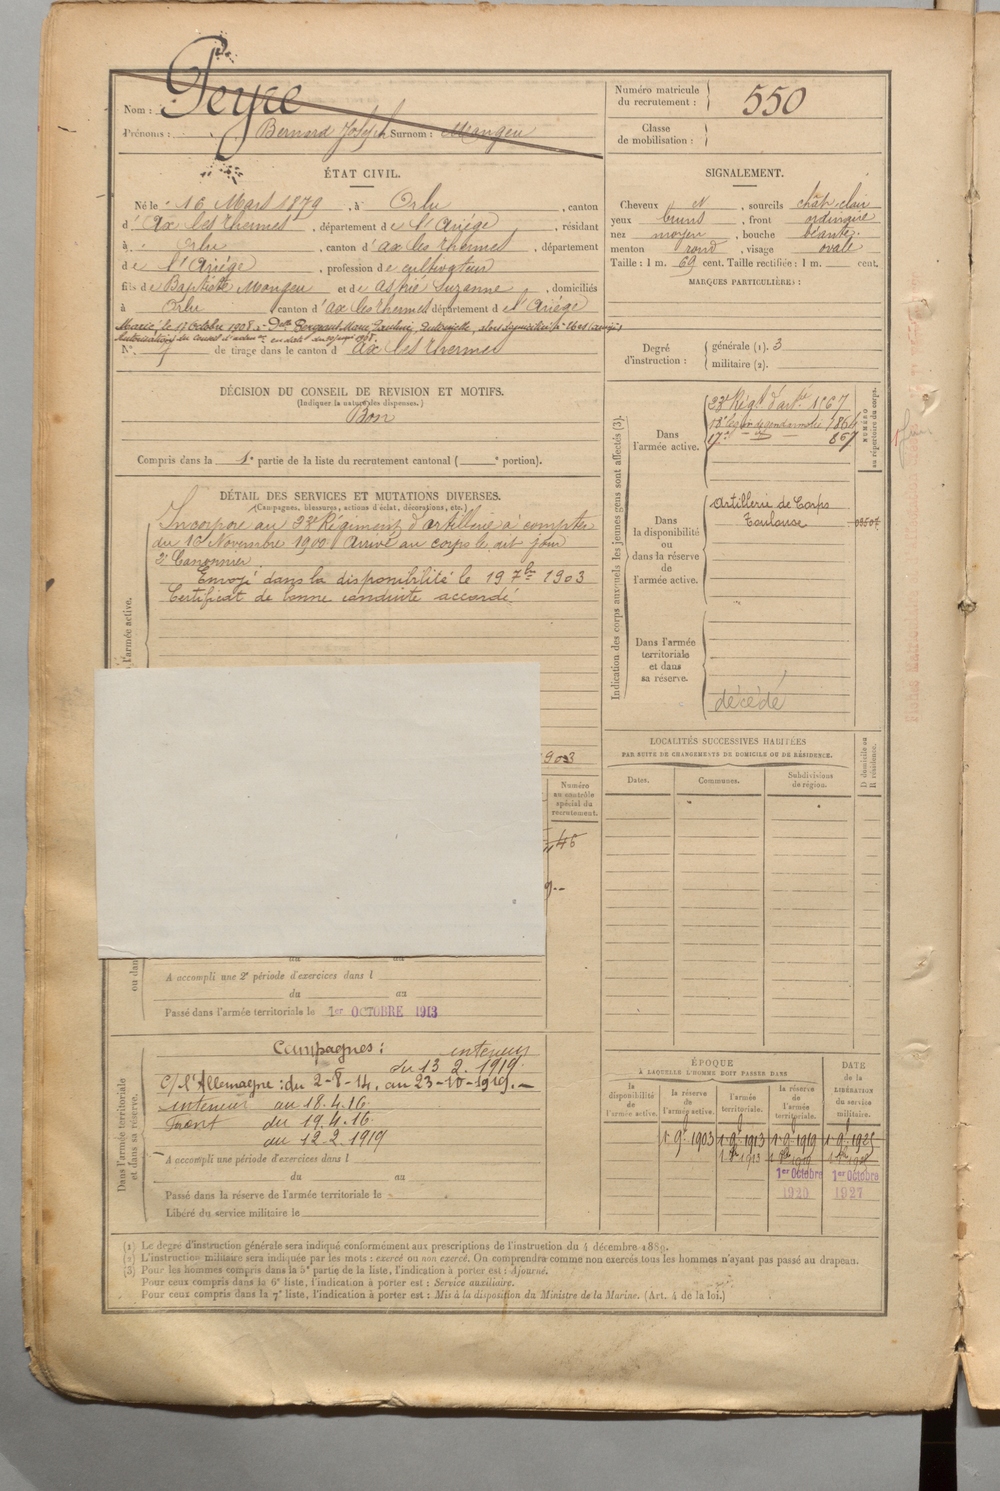 Nom : Peyre
Prénoms : Bernard Joseph Surnom : Mangeu
Numéro matricule du recrutement : 550
Classe de mobilisation :
ÉTAT CIVIL.
Né le 16 Mars 1879, à Orlu, canton
d'Ax les thermes, département de l'Ariége, résidant
à Orlu, canton d'ax les thermes, département
de l'Ariége, profession de cultivateur
fils de Baptiste Mangeu et de Suzanne, domiciliés
à Orlu canton d'ax les thermes département de l'Ariége
Marié, le 17 Octobre 1908, à Dlle Marie
Autorisation du
N° de tirage dans le canton d'ax les thermes
SIGNALEMENT.
Cheveux N, sourcils chât clair
yeux bruns, front ordinaire
nez moyen, bouche béante
menton rond, visage ovale
Taille : 1 m. 69 cent. Taille rectifiée : 1 m. cent.
MARQUES PARTICULIÈRES :
Degré d'instruction : générale (1). 3
militaire (2).
DÉCISION DU CONSEIL DE REVISION ET MOTIFS.
(Indiquer la nature des dispenses.)
Bon
Compris dans la 1e partie de la liste du recrutement cantonal ( e portion).
DÉTAIL DES SERVICES ET MUTATIONS DIVERSES.
(Campagnes, blessures, actions d'éclat, décorations, etc.)
Incorporé au 23e Régiment d'artillerie à compter
du 16 Novembre 1900. Arrivé au corps le dit jour
2e Canonnier
Envoyé dans la disponibilité le 19 7bre 1903
Certificat de bonne conduite accordé.
l'armée active.
Indication des corps auxquels les jeunes gens sont affectés (3).
NUMÉRO au répertoire du corps.
Dans l'armée active.
23e Régt d'artie 1567
18e légion de gendarmerie 1864
17e 867
Dans la disponibilité ou dans la réserve de l'armée active.
Artillerie de Corps
Toulouse 03507
Dans l'armée territoriale et dans sa réserve.
décédé
LOCALITÉS SUCCESSIVES HABITÉES
PAR SUITE DE CHANGEMENTS DE DOMICILE OU DE RÉSIDENCE.
Dates. Communes. Subdivisions de région. D domicile ou R résidence.
903
Numéro au contrôle spécial du recrutement.
46
ou dan
du au
A accompli une 2e période d'exercices dans l
du au
Passé dans l'armée territoriale le 1er OCTOBRE 1913
Dans l'armée territoriale et dans sa réserve.
Campagnes : intérieur
du 13 2. 1919.
C/ l'Allemagne : du 2-8-14, au 23-10-1919. —
intérieur au 18.4.16.
Front du 19.4.16.
au 12.2.1919
A accompli une période d'exercices dans l
du au
Passé dans la réserve de l'armée territoriale le
Libéré du service militaire le
ÉPOQUE
À LAQUELLE L'HOMME DOIT PASSER DANS
la disponibilité de l'armée active. la réserve de l'armée active. l'armée territoriale. la réserve de l'armée territoriale.
DATE de la LIBÉRATION du service militaire.
1. 9e 1903 1. 9. 1913 1. 9. 1919 1. 9. 1925
1913 1919
1er Octobre 1920 1er Octobre 1927
(1) Le degré d'instruction générale sera indiqué conformément aux prescriptions de l'instruction du 4 décembre 1889.
(2) L'instruction militaire sera indiquée par les mots : exercé ou non exercé. On comprendra comme non exercés tous les hommes n'ayant pas passé au drapeau.
(3) Pour les hommes compris dans la 5e partie de la liste, l'indication à porter est : Ajourné.
Pour ceux compris dans la 6e liste, l'indication à porter est : Service auxiliaire.
Pour ceux compris dans la 7e liste, l'indication à porter est : Mis à la disposition du Ministre de la Marine. (Art. 4 de la loi.)